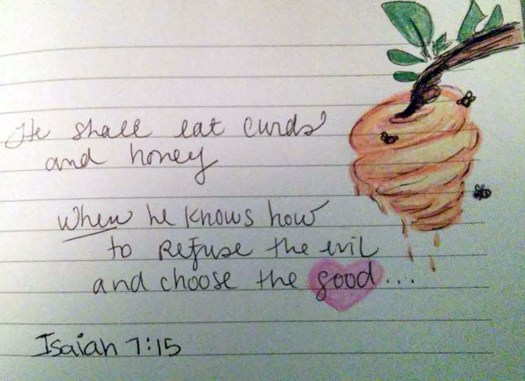 He shall eat curds
and honey
When he knows how
to Refuse the evil
and choose the good...
Isaiah 7:15